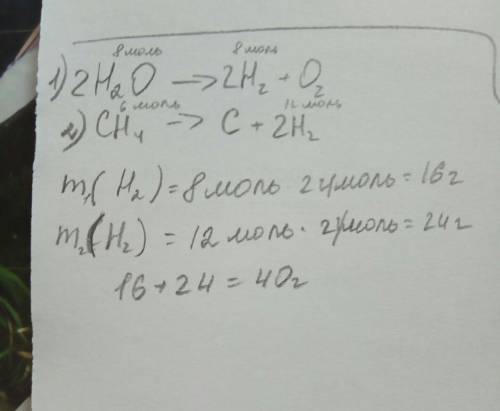 8 моль 8 моль
1) 2H₂O → 2H₂ + O₂
6 моль 12 моль
2) CH₄ → C + 2H₂
m₁(H₂) = 8 моль · 2 г/моль = 16 г
m₂(H₂) = 12 моль · 2 г/моль = 24 г
16 + 24 = 40 г